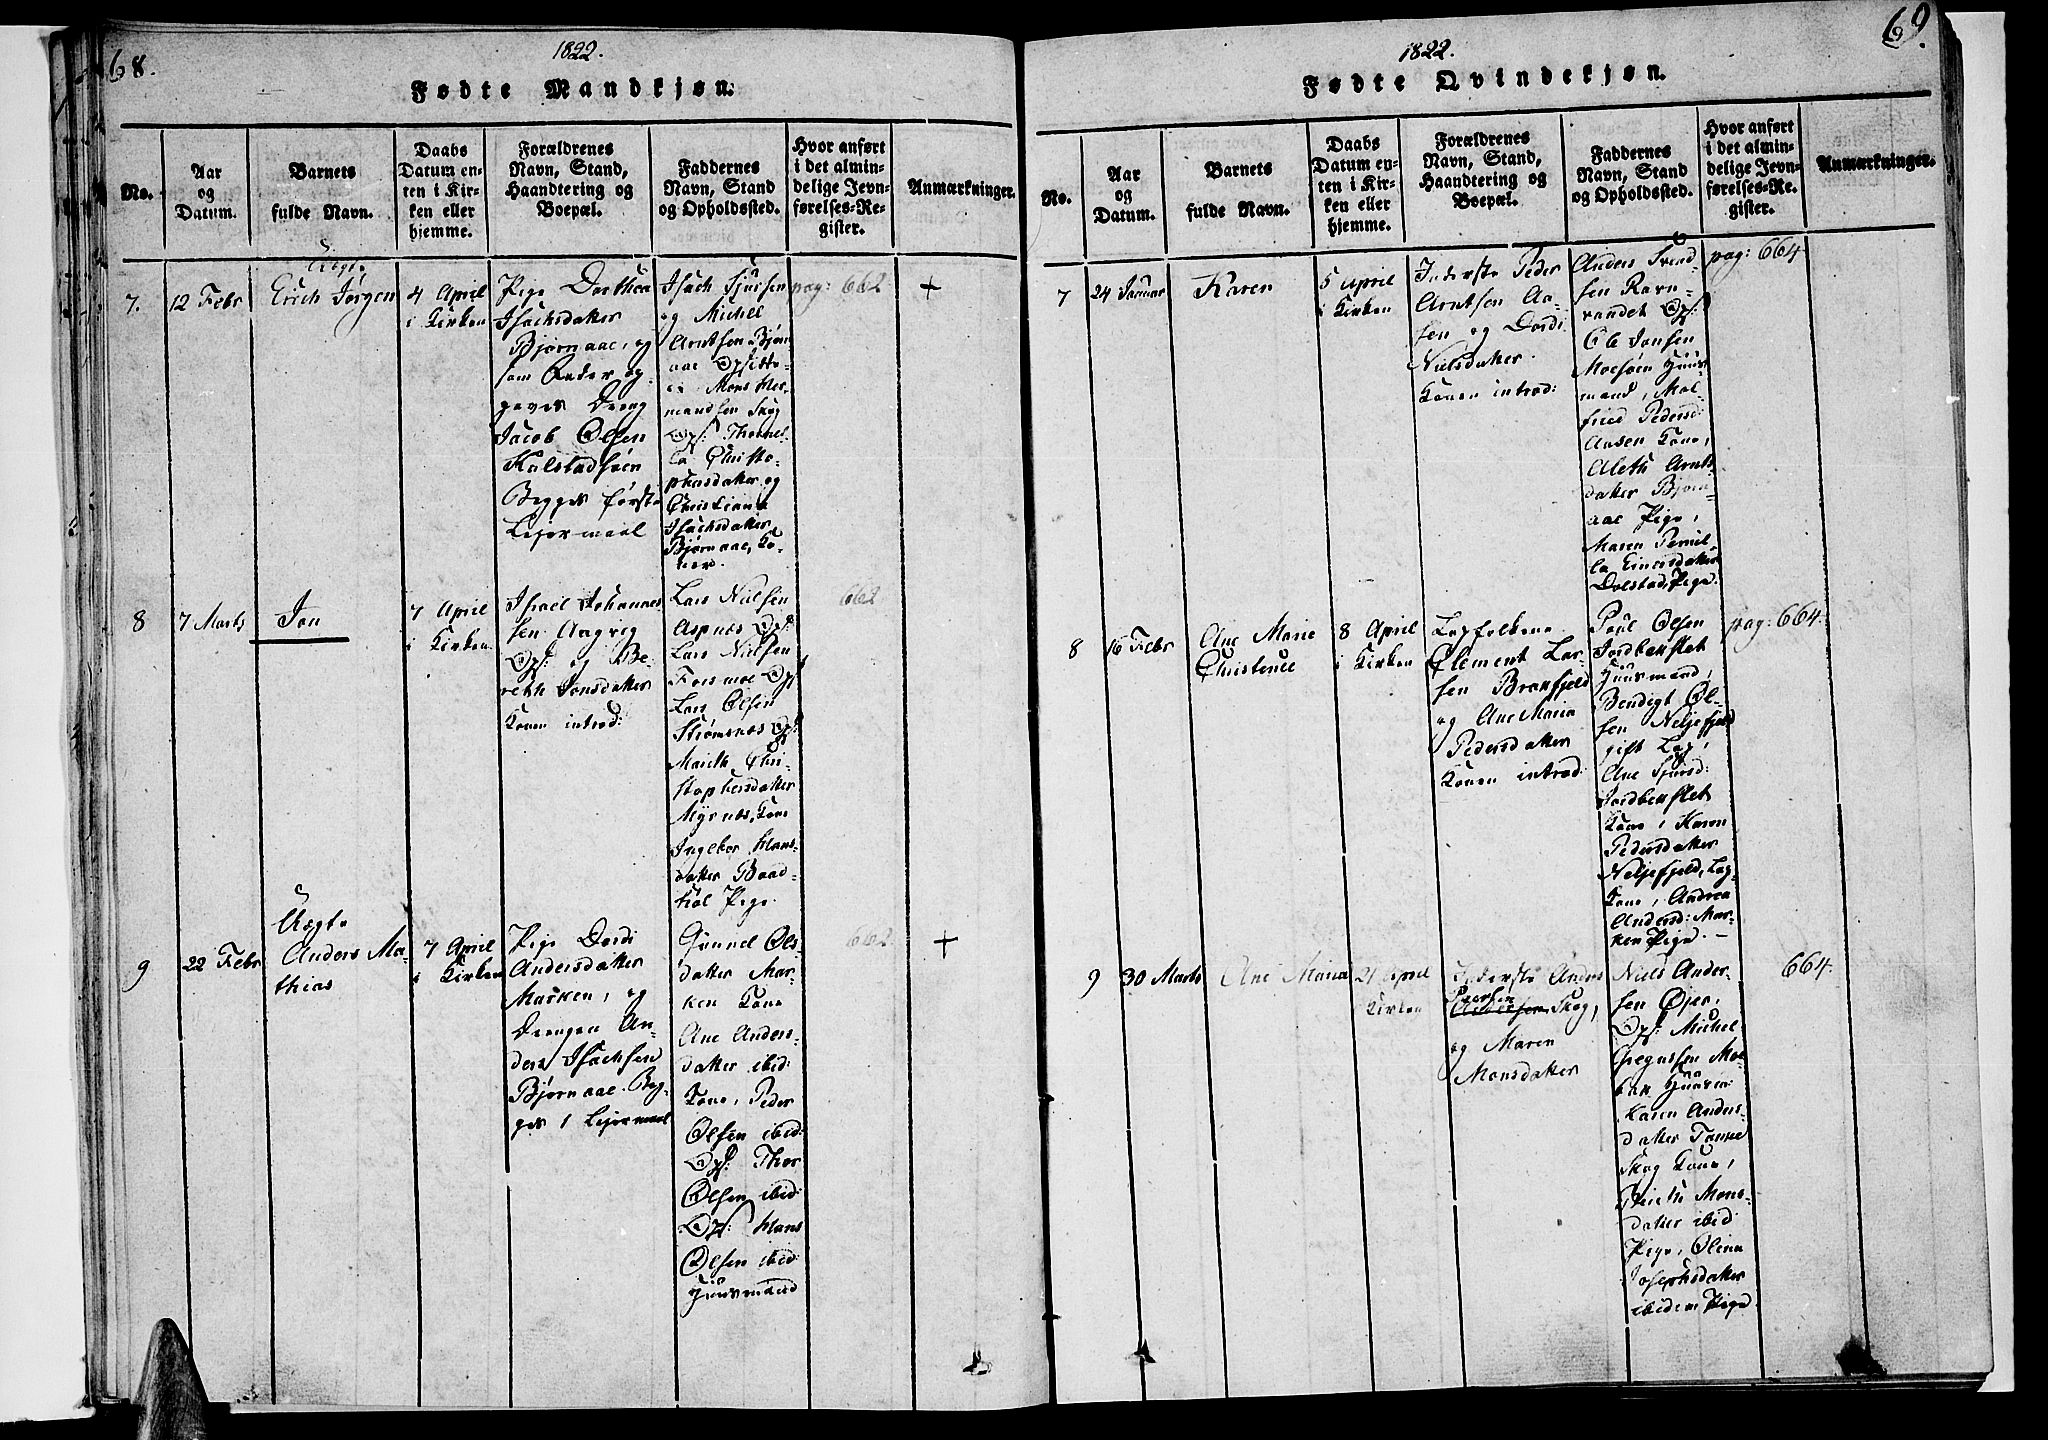 68.
1822.
Fødte Mandkjøn.
No.
Aar
og
Datum.
Barnets
fulde Navn.
Daabs
Datum en-
ten i Kir-
ken eller
hjemme.
Forældrenes
Navn, Stand,
Haandtering og
Boepæl.
Faddernes
Navn, Stand
og Opholdssted.
Hvor anført
i det almin-
delige Jevn-
førelses-Re-
gister.
Anmærkninger.
7.
12 Febr
Uægte
Erich Jørgen
4 April
i Kirken
Pige Dorthea
Isachsdatter
Bjørnaae, og
som Fader op-
gives Dreng
Jacob Olsen
Kulstadsøen
Begges første
Lejermaal
Isach Sjursen
og Michel
Arntsen Bjørn
aae Opsidde-
re Mons Her-
mandsen Skog
Ops: Thornel-
la Christo-
phersdatter og
Christianna
Isachsdatter
Bjørnaae, Ko-
ner.
pag: 662
+
8
7 Marts
Jon
7 April
i Kirken
Israel Johannes
sen Aagvig
Ops: og Be-
rethe Jonsdatter
Konen introd:
Lars Nielsen
Aspnæs Ops:
Lars Nielsen
Forsmoe Ops
Lars Olsen
Strømnæs Ops:
Marith Chri-
stophersdatter
Myrnæs, Kone
Ingebor Hans-
datter Baad-
stol Pige.
662
9
22 Febr
Uægte
Anders Ma-
thias
7 April
i Kirken
Pige Dordi
Andersdatter
Marken, og
Drengen An-
ders Isachsen
Bjørnaae. Beg-
ges 1 Lejermaal
Gunnel Ols-
datter Mar-
ken Kone
Ane Anders-
datter ibid:
Kone, Peder
Olsen ibid:
Ops: Thor
Olsen ibid:
Ops: Hans
Olsen ibid:
Huusmand
662
+
69.
1822.
Fødte Qvindekjøn.
No.
Aar
og
Datum.
Barnets
fulde Navn.
Daabs
Datum en-
ten i Kir-
ken eller
hjemme.
Forældrenes
Navn, Stand,
Haandtering og
Boepæl.
Faddernes
Navn, Stand
og Opholdssted.
Hvor anført
i det almin-
delige Jevn-
førelses-Re-
gister.
Anmærkninger.
7
24 Januar
Karen
5 April
i Kirken
Inderste Peder
Arntsen Aa-
sen og Dordi
Nielsdatter
Konen introd:
Anders Svend-
sen Ravn-
randet Ops:
Ole Jonsen
Moesøen Huus
mand, Mal-
fried Pedersd:
Aasen Kone,
Aleth Arnts-
datter Bjørn-
aae Pige,
Maren Pernil-
la Einersdatter
Dolstad, Pige
pag: 664
8
16 Febr
Ane Marie
Christence
8 April
i Kirken
Lapfolkene
Clement Lar-
sen Brunfjeld
og Ane Maria
Pedersdatter
Konen introd:
Poul Olsen
Jordbekslet
Huusmand,
Bendigt Ol-
sen Neljefjeld
gift Lap,
Ane Sjursd:
Jordbekslet
Kone, Karen
Pedersdatter
Neljefjeld, Lap
Kone, Andrea
Andersd: Mar-
ken Pige. –
pag: 664.
9
30 Marts
Ane Maria
21 April
Kirken
Inderste Anders
Pedersen
Skog,
og Maren
Monsdatter
Niels Ander-
sen Øjer,
Ops: Michel
Gregussen Moe-
Huusm:
Karen Anders-
datter
Skog Kone,
Mons-
datter ibid
Pige, Olina
Josephsdatter
ibidem Pige.
664.